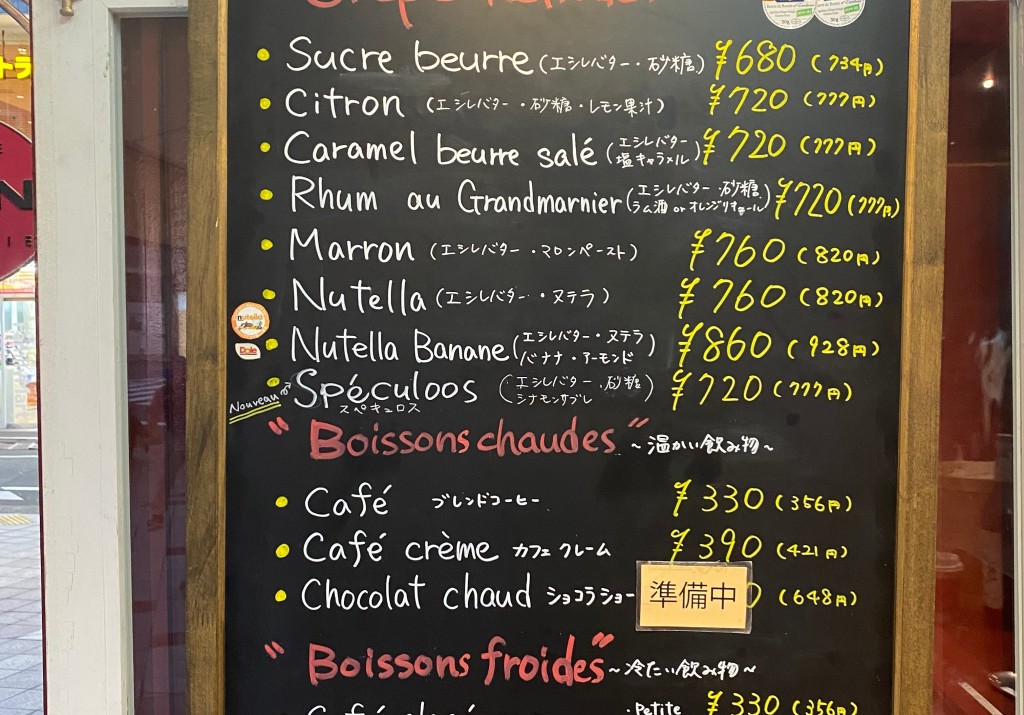 Sucre beurre (エシレバター・砂糖) ¥680 (734円)
Citron (エシレバター・砂糖・レモン果汁) ¥720 (777円)
Caramel beurre salé (エシレバター・塩キャラメル) ¥720 (777円)
Rhum au Grandmarnier (エシレバター 砂糖 ラム酒 or オレンジリキュール) ¥720 (777円)
Marron (エシレバター・マロンペースト) ¥760 (820円)
Nutella (エシレバター・ヌテラ) ¥760 (820円)
nutella
Dole
Nutella Banane (エシレバター・ヌテラ バナナ・アーモンド) ¥860 (928円)
Nouveau
Spéculoos (エシレバター・砂糖 シナモンサブレ) ¥720 (777円)
スペキュロス
"Boissons chaudes" ~温かい飲み物~
Café ブレンドコーヒー ¥330 (356円)
Café crème カフェ クレーム ¥390 (421円)
Chocolat chaud ショコラショー 準備中 0 (648円)
"Boissons froides" ~冷たい飲み物~
・Petite ¥330 (356円)